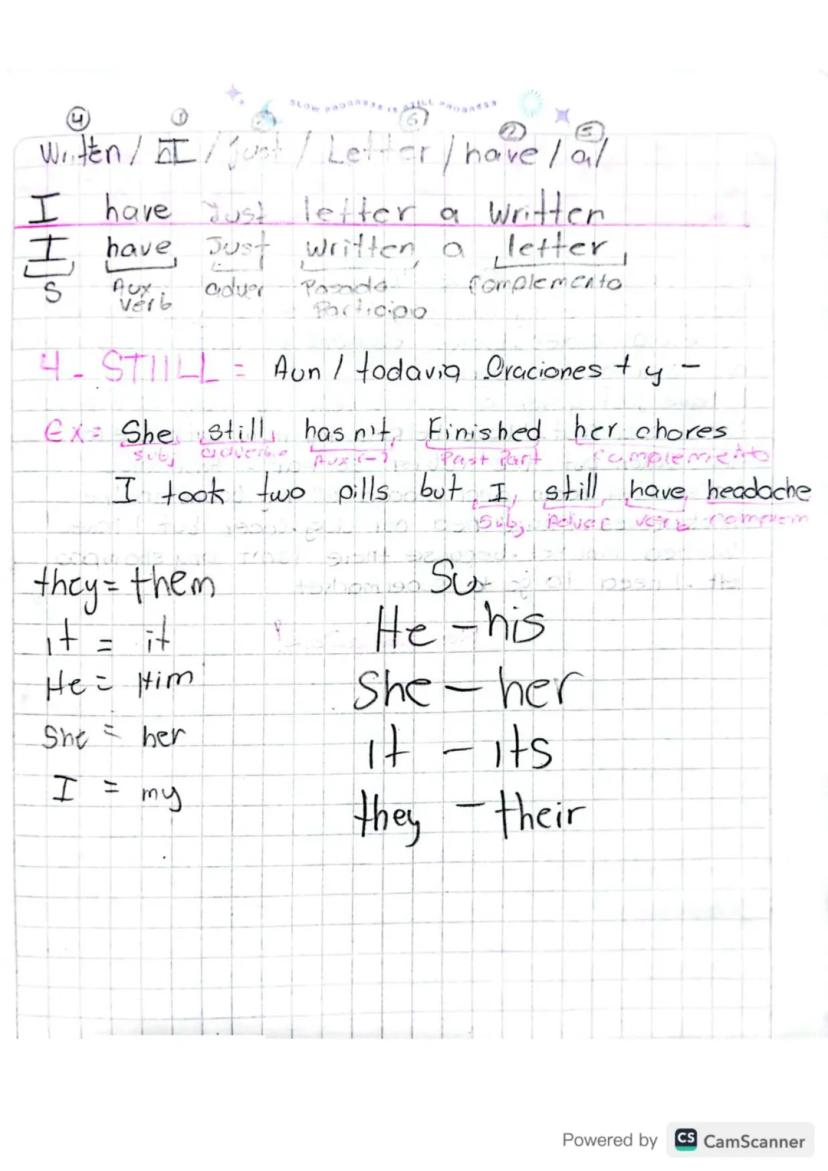 SLOW PROGRESS IS STILL PROGRESS
4 1 6 2 5
Written / I / just / Letter / have / a/
I have Just letter a written
I have Just written a letter
S Aux verb adver Pasado Participio Complemento
4 - STIILL = Aun / todavia Oraciones + y -
Ex= She still hasn't Finished her chores
Subj adverbio Aux (-) Past Part Complemento
I took two pills but I still have headache
Subj Adver verb complem
they = them
it = it
He = Him
She = her
I = my
Su
He - his
She - her
it - its
they - their
Powered by CS CamScanner